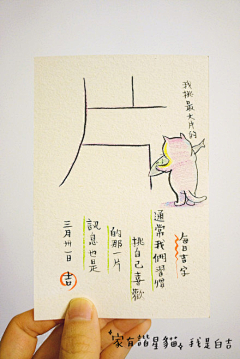 片
我挑最大片的
每吉字
通常我們習慣
挑自己喜歡
的那一片
訊息也是
三月卅一日 吉
家有諧星貓 我是白吉